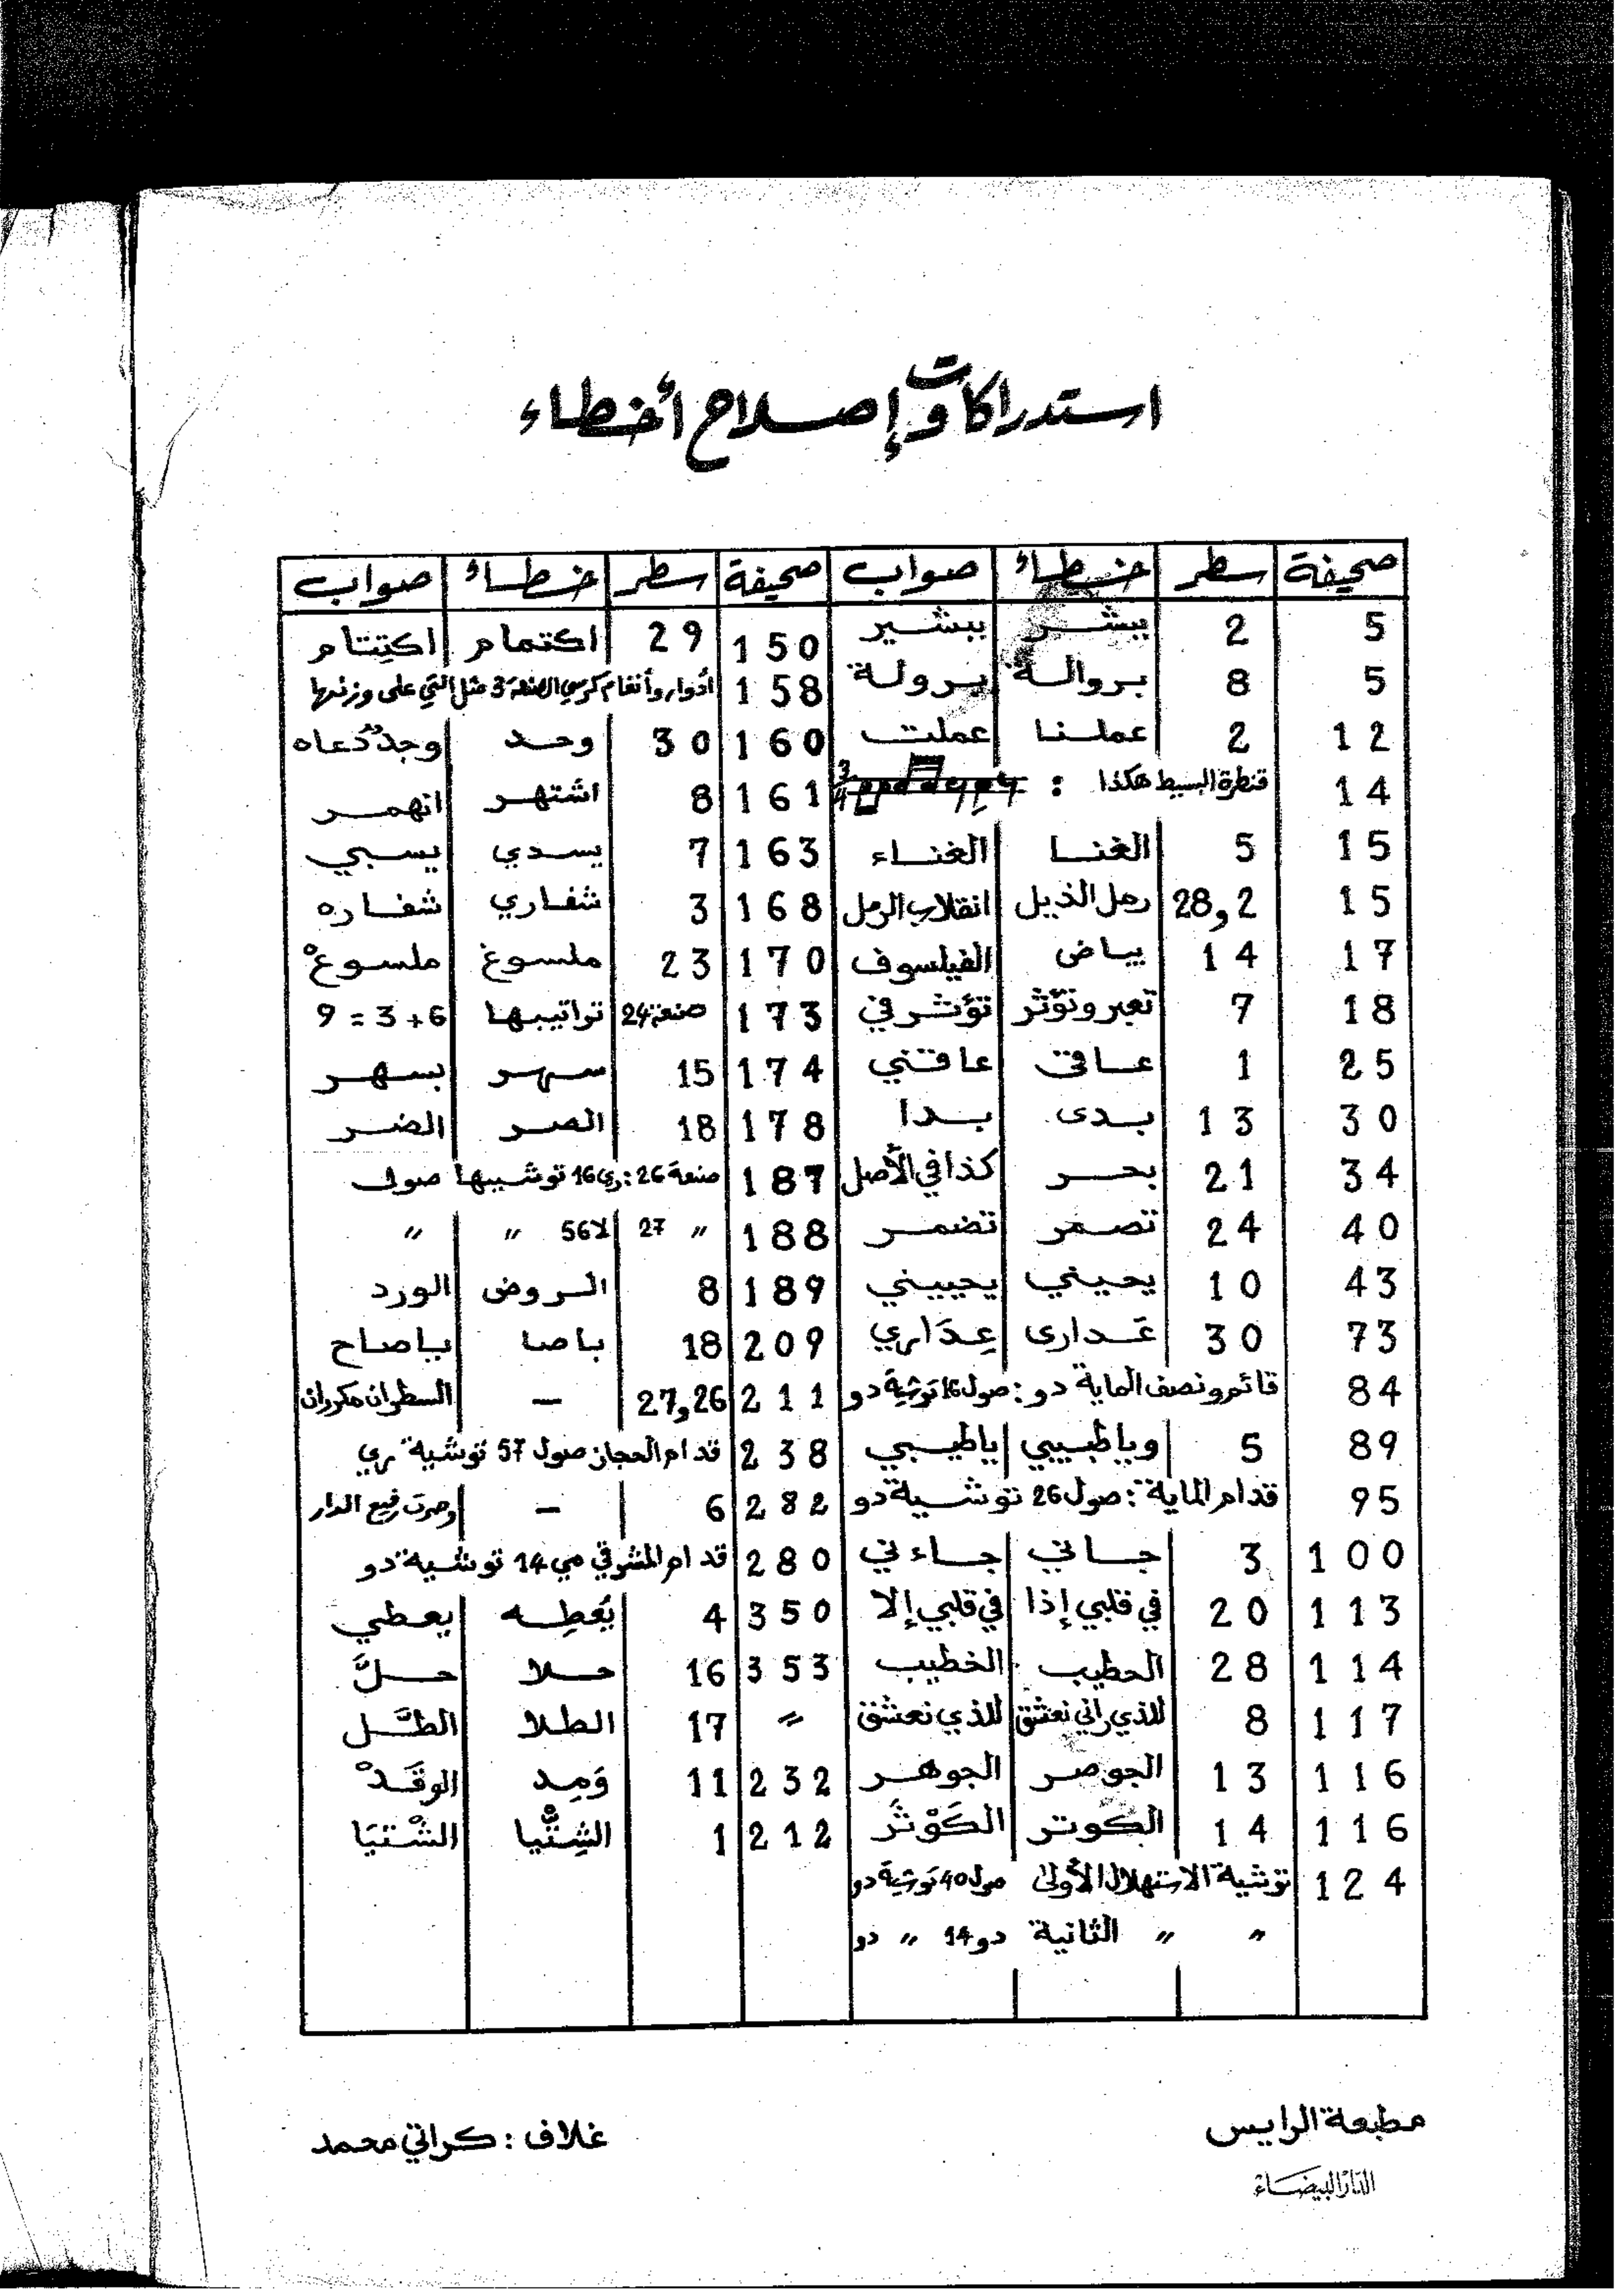 استدراكات وإصلاح أخطاء
صحيفة سطر خطاء صواب صحيفة سطر خطاء صواب
5 2 يبشر ببشير 150 29 اكتمام اكتتام
5 8 بروالة برولة 158 أدوار وأنغام كرسي الصنعة 3 مثل التي على وزنها
12 2 عملنا عملت 160 30 وحد وجد دعاه
14 قنطرة البسيط هكذا : 161 8 اشتهر انهمر
15 5 الغنا الغناء 163 7 يسدي يسبي
15 28,2 رمل الذيل انقلاب الرمل 168 3 شفاري شفاره
17 14 بياض الفيلسوف 170 23 ملسوغ ملسوغْ
18 7 تعبر وتؤثر تؤثر في 173 صنعة 24 تراتيبها 6+3=9
25 1 عاق عاقني 174 15 سهر بسهر
30 13 بدى بدا 178 18 الصر الضر
34 21 بحر كذا في الأصل 187 صنعة 26 : ري 16 توشيبها صول
40 24 تصمر تضمر 188 〃 27 لا 56 〃 〃
43 10 يحيني يحييني 189 8 الروض الورد
73 30 عَدارى عِذَاري 209 18 باصا ياصاح
84 قائم ونصف الماية دو : صول 16 توشية دو 211 27,26 — السطران مكرران
89 5 وياطبيبي ياطبيبي 238 قدام الحجاز صول 57 توشية ري
95 قدام الماية : صول 26 توشية دو 282 6 — وصرت رفيع الدار
100 3 جاني جاءني 280 قدام المشرقي مي 14 توشية دو
113 20 في قلبي إذا في قلبي إلا 350 4 يُعطِه يعطي
114 28 الحطيب الخطيب 353 16 حلا حلَّ
117 8 للذي راني نعشق للذي نعشق 〃 17 الطلا الطَّل
116 13 الجوصر الجوهر 232 11 وَمِد الوقَدْ
116 14 الكوتر الكَوْثَر 212 1 الشِتْيا الشْتيَا
124 توشية الاستهلال الأولى صول 40 توشية دو
〃 〃 الثانية دو 14 〃 دو
مطبعة الرايس غلاف : كراتي محمد
الدار البيضاء